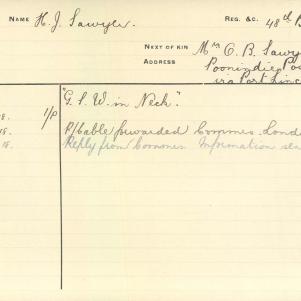 NAME H. J. Sawyer. REG. &C. 48th B
NEXT OF KIN Mrs C. B. Sawy
ADDRESS Poonindie Po
via Port Linc
"G. S. W. in Neck".
8. 1/P
18. P/Cable forwarded Commes. Lond
18. Reply from Commes Information